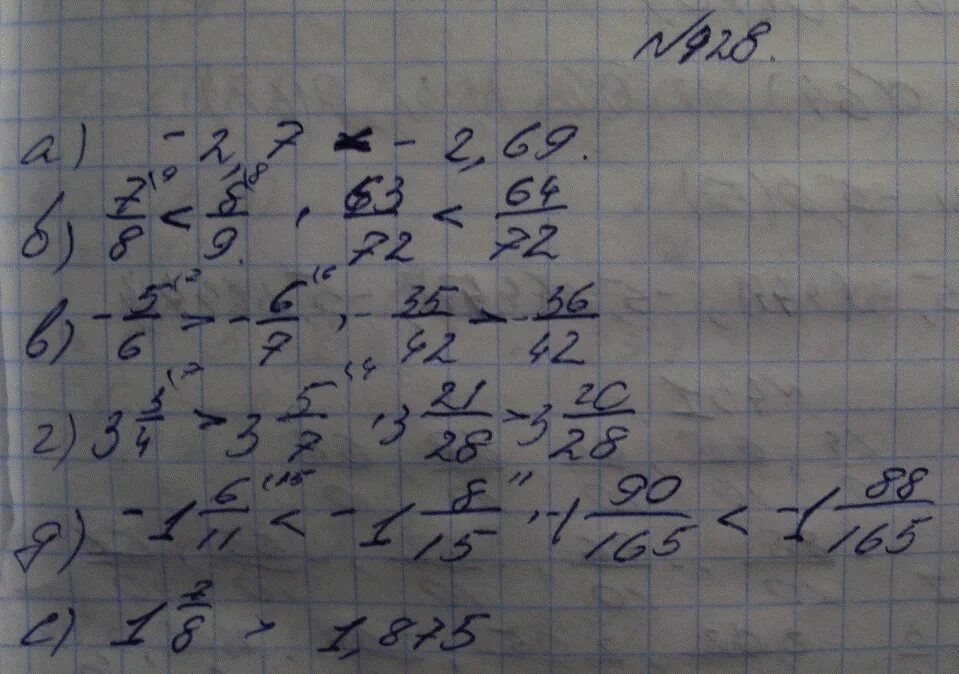 №428.
а) -2,7 < -2,69.
б) 7/8 (9 < 8/9 (8, 63/72 < 64/72
в) -5/6 (7 > -6/7 (6, -35/42 > -36/42
г) 3 3/4 (7 > 3 5/7 (4, 3 21/28 > 3 20/28
д) -1 6/11 (15 < -1 8/15 11, -1 90/165 < -1 88/165
е) 1 7/8 > 1,875